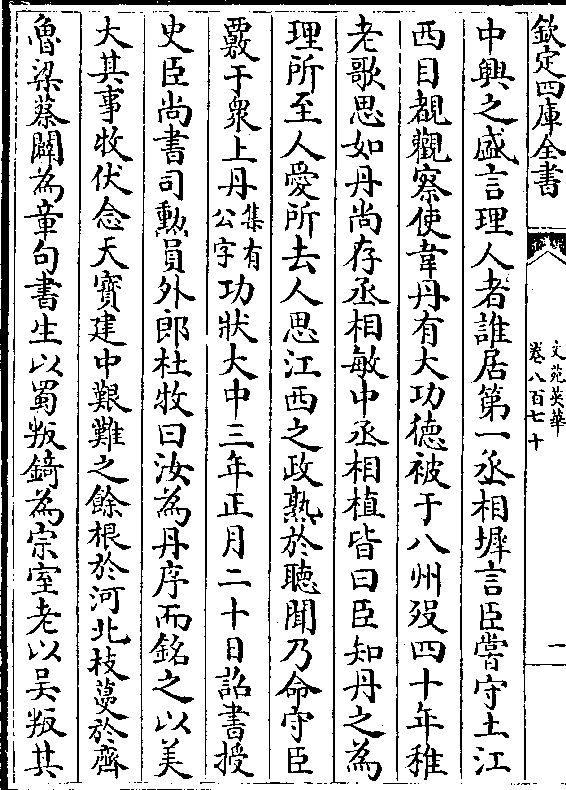 欽定四庫全書
文苑英華
卷八百七十
一
中興之盛言理人者誰居第一丞相墀言臣嘗守土江
西目覩觀察使韋丹有大功德被于八州殁四十年稚
老歌思如丹尚存丞相敏中丞相植皆曰臣知丹之為
理所至人愛所去人思江西之政熟於聽聞乃命守臣
覈于衆上丹集有公字功狀大中三年正月二十日詔書授
史臣尚書司勲員外郎杜牧曰汝為丹序而銘之以美
大其事牧伏念天寶建中艱難之餘根於河北枝蔓於齊
魯梁蔡闢為章句書生以蜀叛錡為宗室老以吴叛其